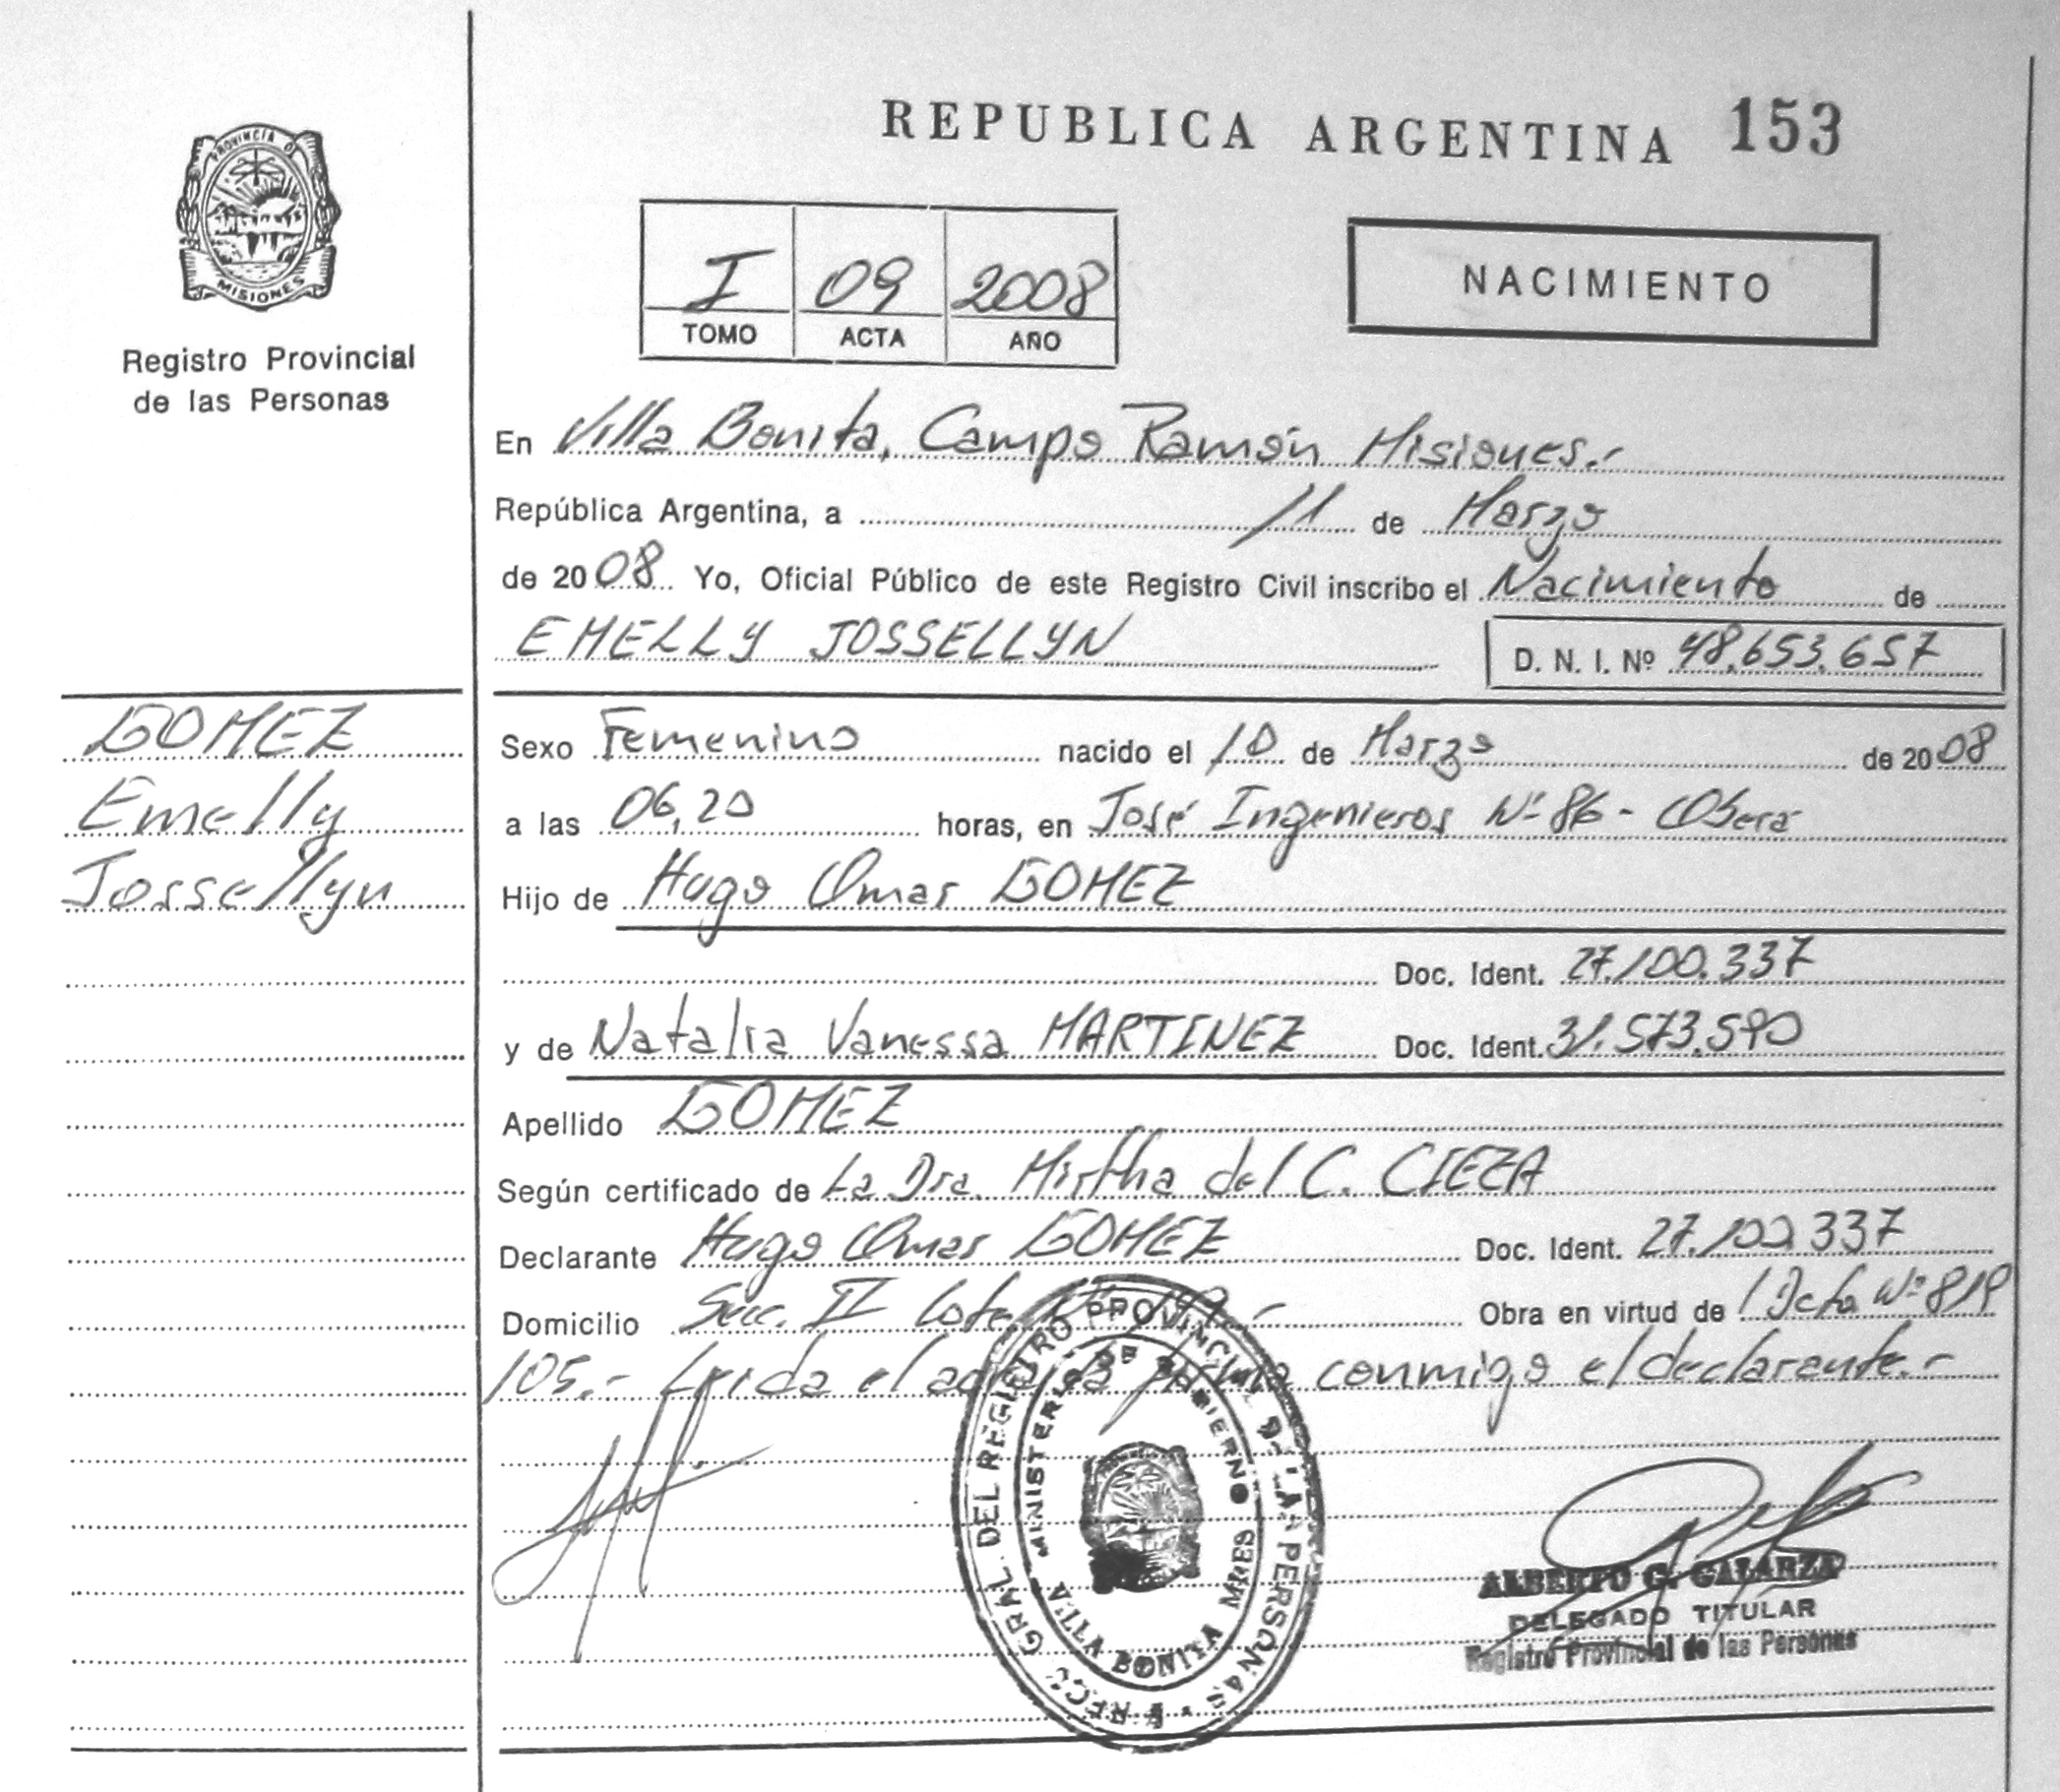 REPUBLICA ARGENTINA 153
PROVINCIA D
MISIONES
Registro Provincial
de las Personas
I 09 2008
TOMO ACTA AÑO
NACIMIENTO
En Villa Bonita, Campo Ramón Misiones.-
República Argentina, a 11 de Marzo
de 2008 Yo, Oficial Público de este Registro Civil inscribo el Nacimiento de
EMELLY JOSSELLYN D. N. I. Nº 48.653.657
GOMEZ
Emelly
Jossellyn
Sexo Femenino nacido el 10 de Marzo de 2008
a las 06,20 horas, en José Ingenieros Nº 86 - Oberá
Hijo de Hugo Omar GOMEZ
Doc. Ident. 27.100.337
y de Natalia Vanessa MARTINEZ Doc. Ident. 31.573.590
Apellido GOMEZ
Según certificado de La Dra. Mirtha del C. CIEZA
Declarante Hugo Omar GOMEZ Doc. Ident. 27.100.337
Domicilio Secc. II Lote Obra en virtud de
105.- Leida el acta la firma conmigo el declarante.-
GRAL. DEL REGISTRO PROVINCIAL DE LAS PERSONAS
MINISTERIO DE GOBIERNO
VILLA BONITA MNES
ALBERTO G. GALARZA
DELEGADO TITULAR
Registro Provincial de las Personas